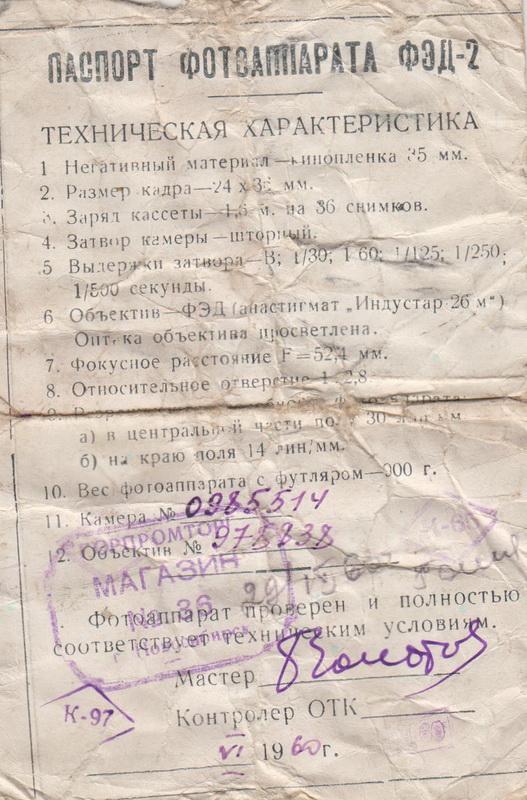 ПАСПОРТ ФОТОАППАРАТА ФЭД-2
ТЕХНИЧЕСКАЯ ХАРАКТЕРИСТИКА
1 Негативный материал—кинопленка 35 мм.
2. Размер кадра—24 х 36 мм.
3. Заряд кассеты—1,6 м. на 36 снимков.
4. Затвор камеры—шторный.
5 Выдержки затвора—В; 1/30; 1/60; 1/125; 1/250;
1/500 секунды.
6 Объектив—ФЭД (анастигмат „Индустар 26 м")
Оптика объектива просветлена.
7. Фокусное расстояние F=52,4 мм.
8. Относительное отверстие 1:2,8
а) в центральной части поля 30 лин/мм
б) на краю поля 14 лин/мм.
10. Вес фотоаппарата с футляром— г.
11. Камера № 0985514
12. Объектив № 975838
МАГАЗИН
№ 36
г. Новосибирск
Фотоаппарат проверен и полностью
соответствует техническим условиям.
Мастер
К-97
Контролер ОТК
VI 1960 г.